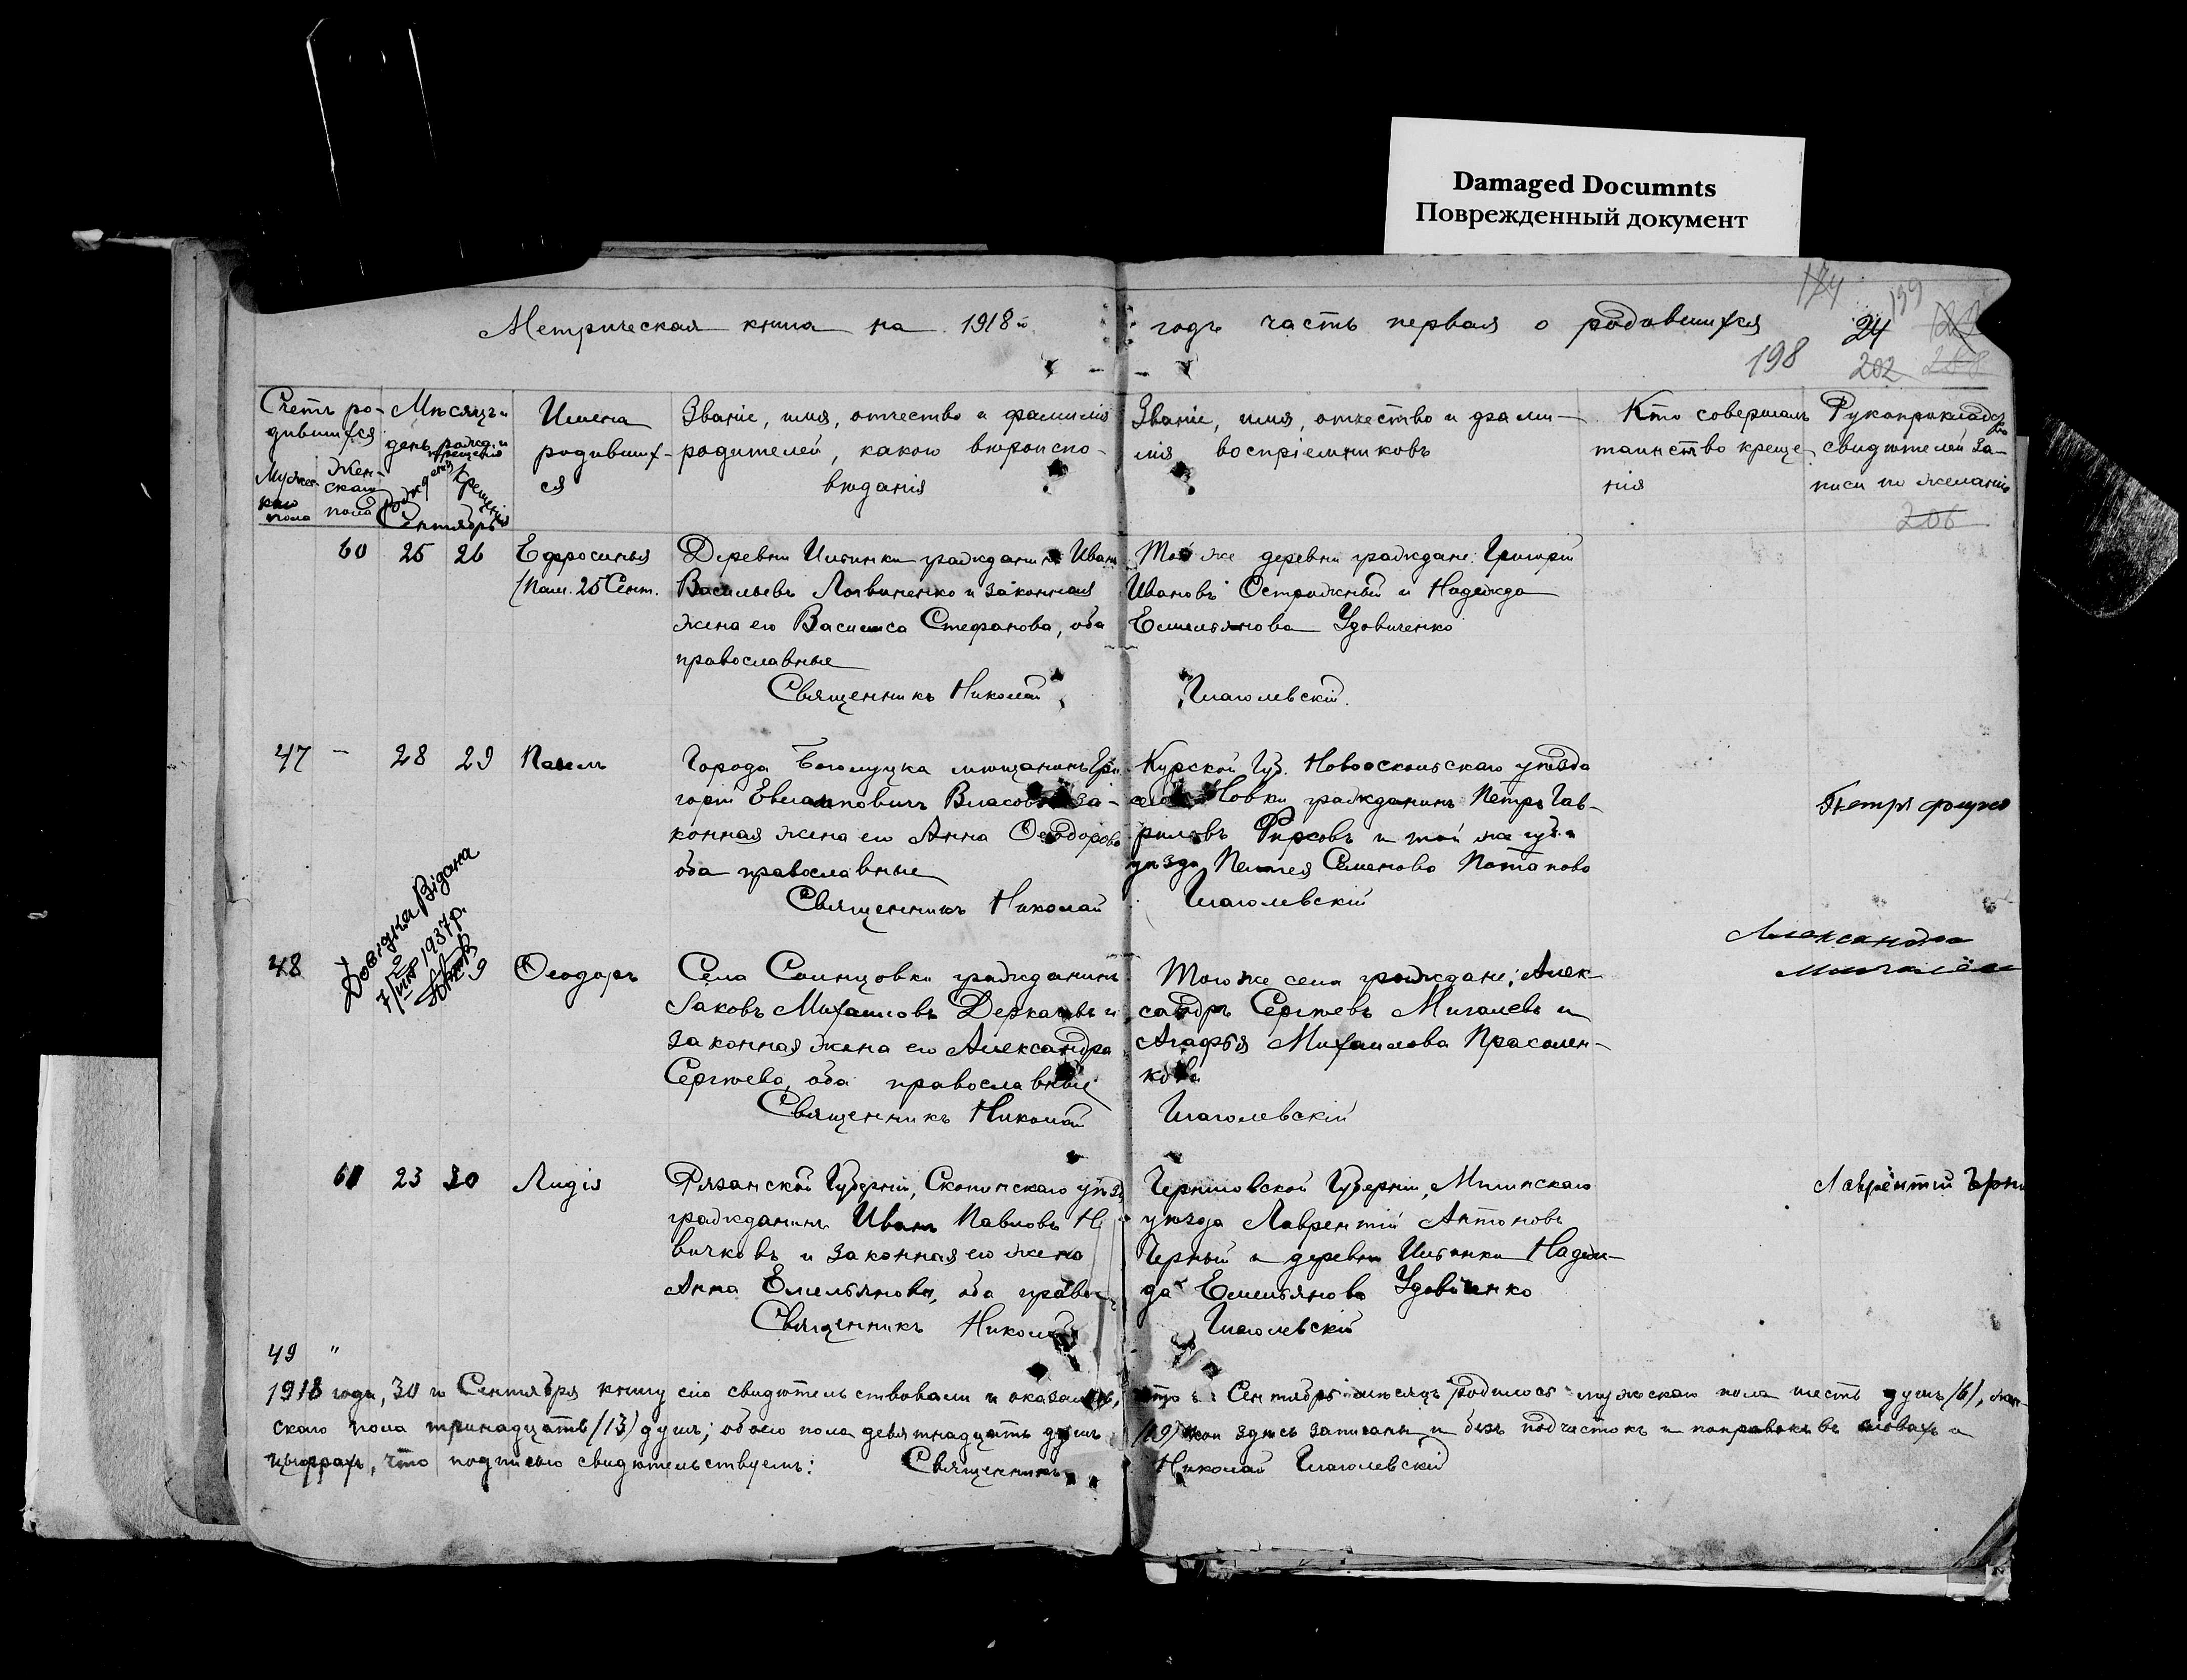 Damaged Documnts
Поврежденный документ
Метрическая книга на 1918 й
годъ часть первая о родившихся
174 199
24
198 202 206
Счетъ родившихся
Мужескаго пола
Женскаго пола
Мѣсяцъ и день рожд. и крещенія
Рожденія
Крещенія
Сентябрь
Имена родившихся
Званіе, имя, отчество и фамилія
родителей, какого вѣроиспо-
вѣданія
Званіе, имя, отчество и фами-
лія воспріемниковъ
Кто совершалъ
таинство креще-
нія
Рукоприкладство
свидѣтелей за-
писи по желанію
60 25 26 Ефросинья
(Пам. 25 Сент.
Деревни Ильинки гражданинъ Иванъ
Васильевъ Логвиненко и законная
жена его Василиса Стефанова, оба
православные
Священникъ Николай
Той же деревни граждане: Григорій
Ивановъ Остражный и Надежда
Емельянова Удовиченко
Глаголевскій.
47 – 28 29 Павелъ
Города мѣщанинъ Гри-
горій Евламповичъ Власовъ и за-
конная жена его Анна Ѳеодорова
оба православные
Священникъ Николай
Курской Губ. Новооскольскаго уѣзда
гражданинъ Петръ Гав-
риловъ Фирсовъ и той же губ. и
уѣзда Семенова Потапова
Глаголевскій
Петръ
Довідка Видана
7/VIII 1937 р.
48 Ѳеодоръ
Села Солнцовки гражданинъ
Іаковъ Михаиловъ Деркачевъ и
законная жена его Александра
Сергѣева, оба православные
Священникъ Николай
Того же села граждане: Алек-
сандръ Сергѣевъ Мигалевъ и
Агафья Михаилова Прасолен-
кова
Глаголевскій
Александръ
61 23 30 Лидія
Рязанской Губерніи, Скопинскаго уѣзда
гражданинъ Иванъ Павловъ
и законная его жена
Анна Емельянова, оба правос-
Священникъ Николай
Черниговской Губерніи, Мглинскаго
уѣзда Лаврентій Антоновъ
Черный и деревни Ильинки Надеж-
да Емельянова Удовиченко
Глаголевскій
Лаврентий
49 "
1918 года, 30 го Сентября книгу сію свидѣтельствовали и оказалось,
что въ Сентябрѣ мѣсяцѣ родилось мужескаго пола шесть душъ (6), жен-
скаго пола тринадцать (13) душъ; обоего пола девятнадцать душъ
(19) кои здѣсь записаны и безъ подчистокъ и поправокъ въ словахъ и
цыфрахъ, что подписью свидѣтельствуемъ: Священникъ
Николай Глаголевскій